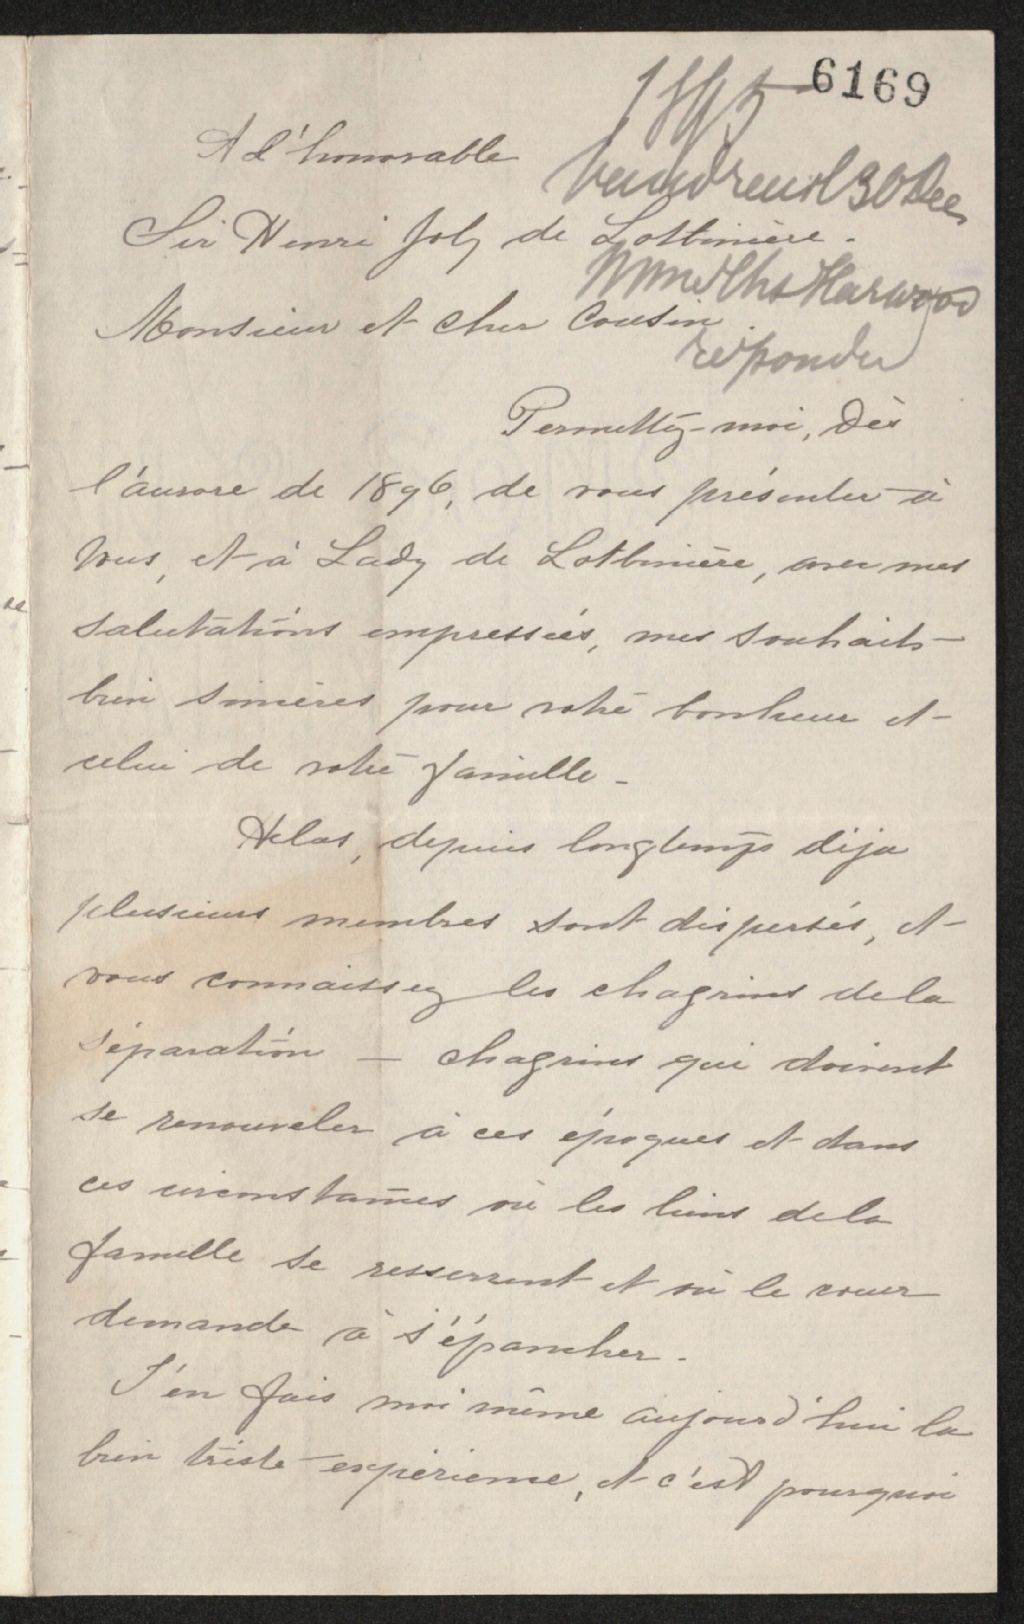 6169
1895
Vaudreuil 30 Dec
Mme Chs Harwood
répondu
A l'honorable
Sir Henri Joly de Lotbinière.
Monsieur et cher Cousin
Permettez-moi, dès
l'aurore de 1896, de vous présenter à
vous, et à Lady de Lotbinière, avec mes
salutations empressées, mes souhaits
bien sincères pour votre bonheur et
celui de votre famille -
Hélas, depuis longtemps déja
plusieurs membres sont dispersés, et
vous connaissez les chagrins de la
séparation — chagrins qui doivent
se renouveler à ces époques et dans
ces circonstances où les liens de la
famille se resserrent et où le coeur
demande à s'épancher.
J'en fais moi même aujourd'hui la
bien triste expérience, et c'est pourquoi